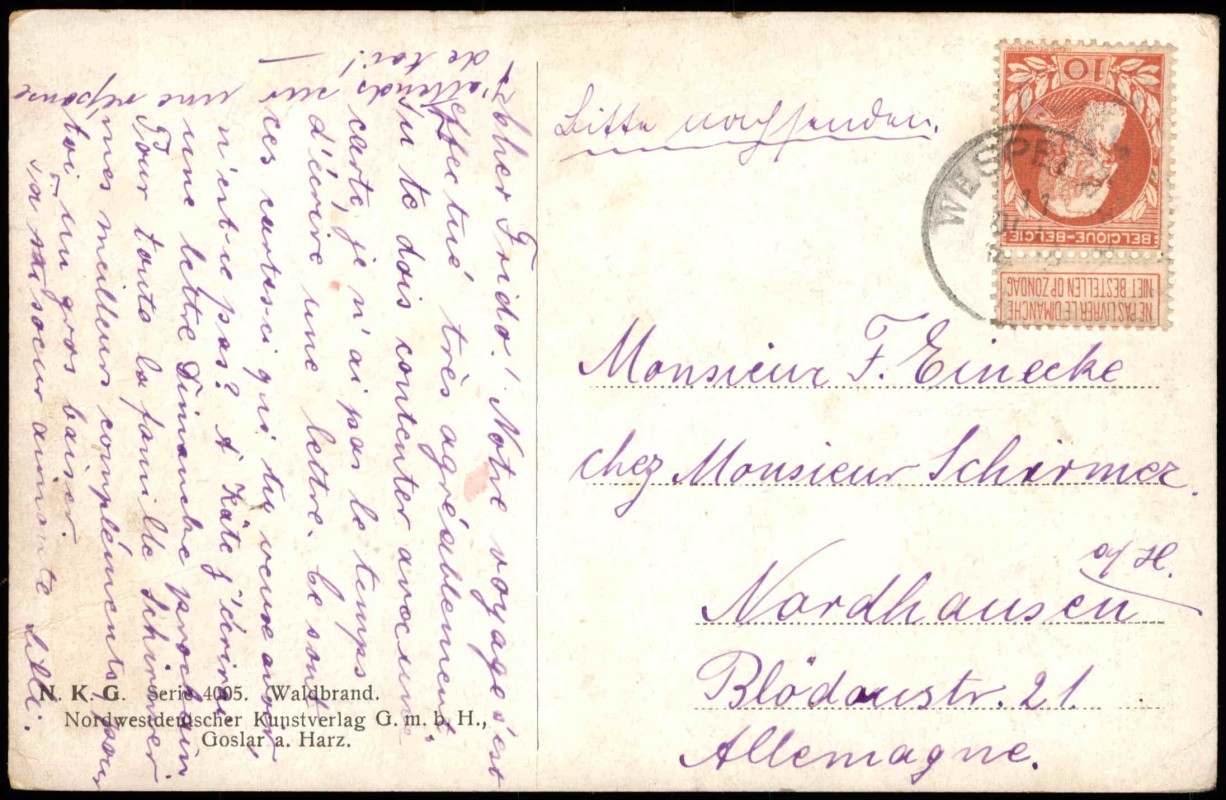 Cher Frido! Notre voyage s'est
effectué très agréablement.
Tu te dois contenter avec une
carte, je n'ai pas le temps
d'écrire une lettre. Ce sont
ces cartes-ci que tu veux avoir
n'est-ce pas? A Käte j'écrirai
une lettre Dimanche prochain
Pour toute la famille Schirmer
mes meilleurs compléments pour
toi un gros baiser.
Ta sœur aimante Lilli.
J'attends sur une réponse
de toi!
Bitte nachsenden.
Monsieur F. Einecke
chez Monsieur Schirmer.
Nordhausen a/H.
Blödaustr. 21.
Allemagne.
10
BELGIQUE-BELGIE
NE PAS LIVRER LE DIMANCHE
NIET BESTELLEN OP ZONDAG
11
N. K. G. Serie 4005. Waldbrand.
Nordwestdeutscher Kunstverlag G. m. b. H.,
Goslar a. Harz.